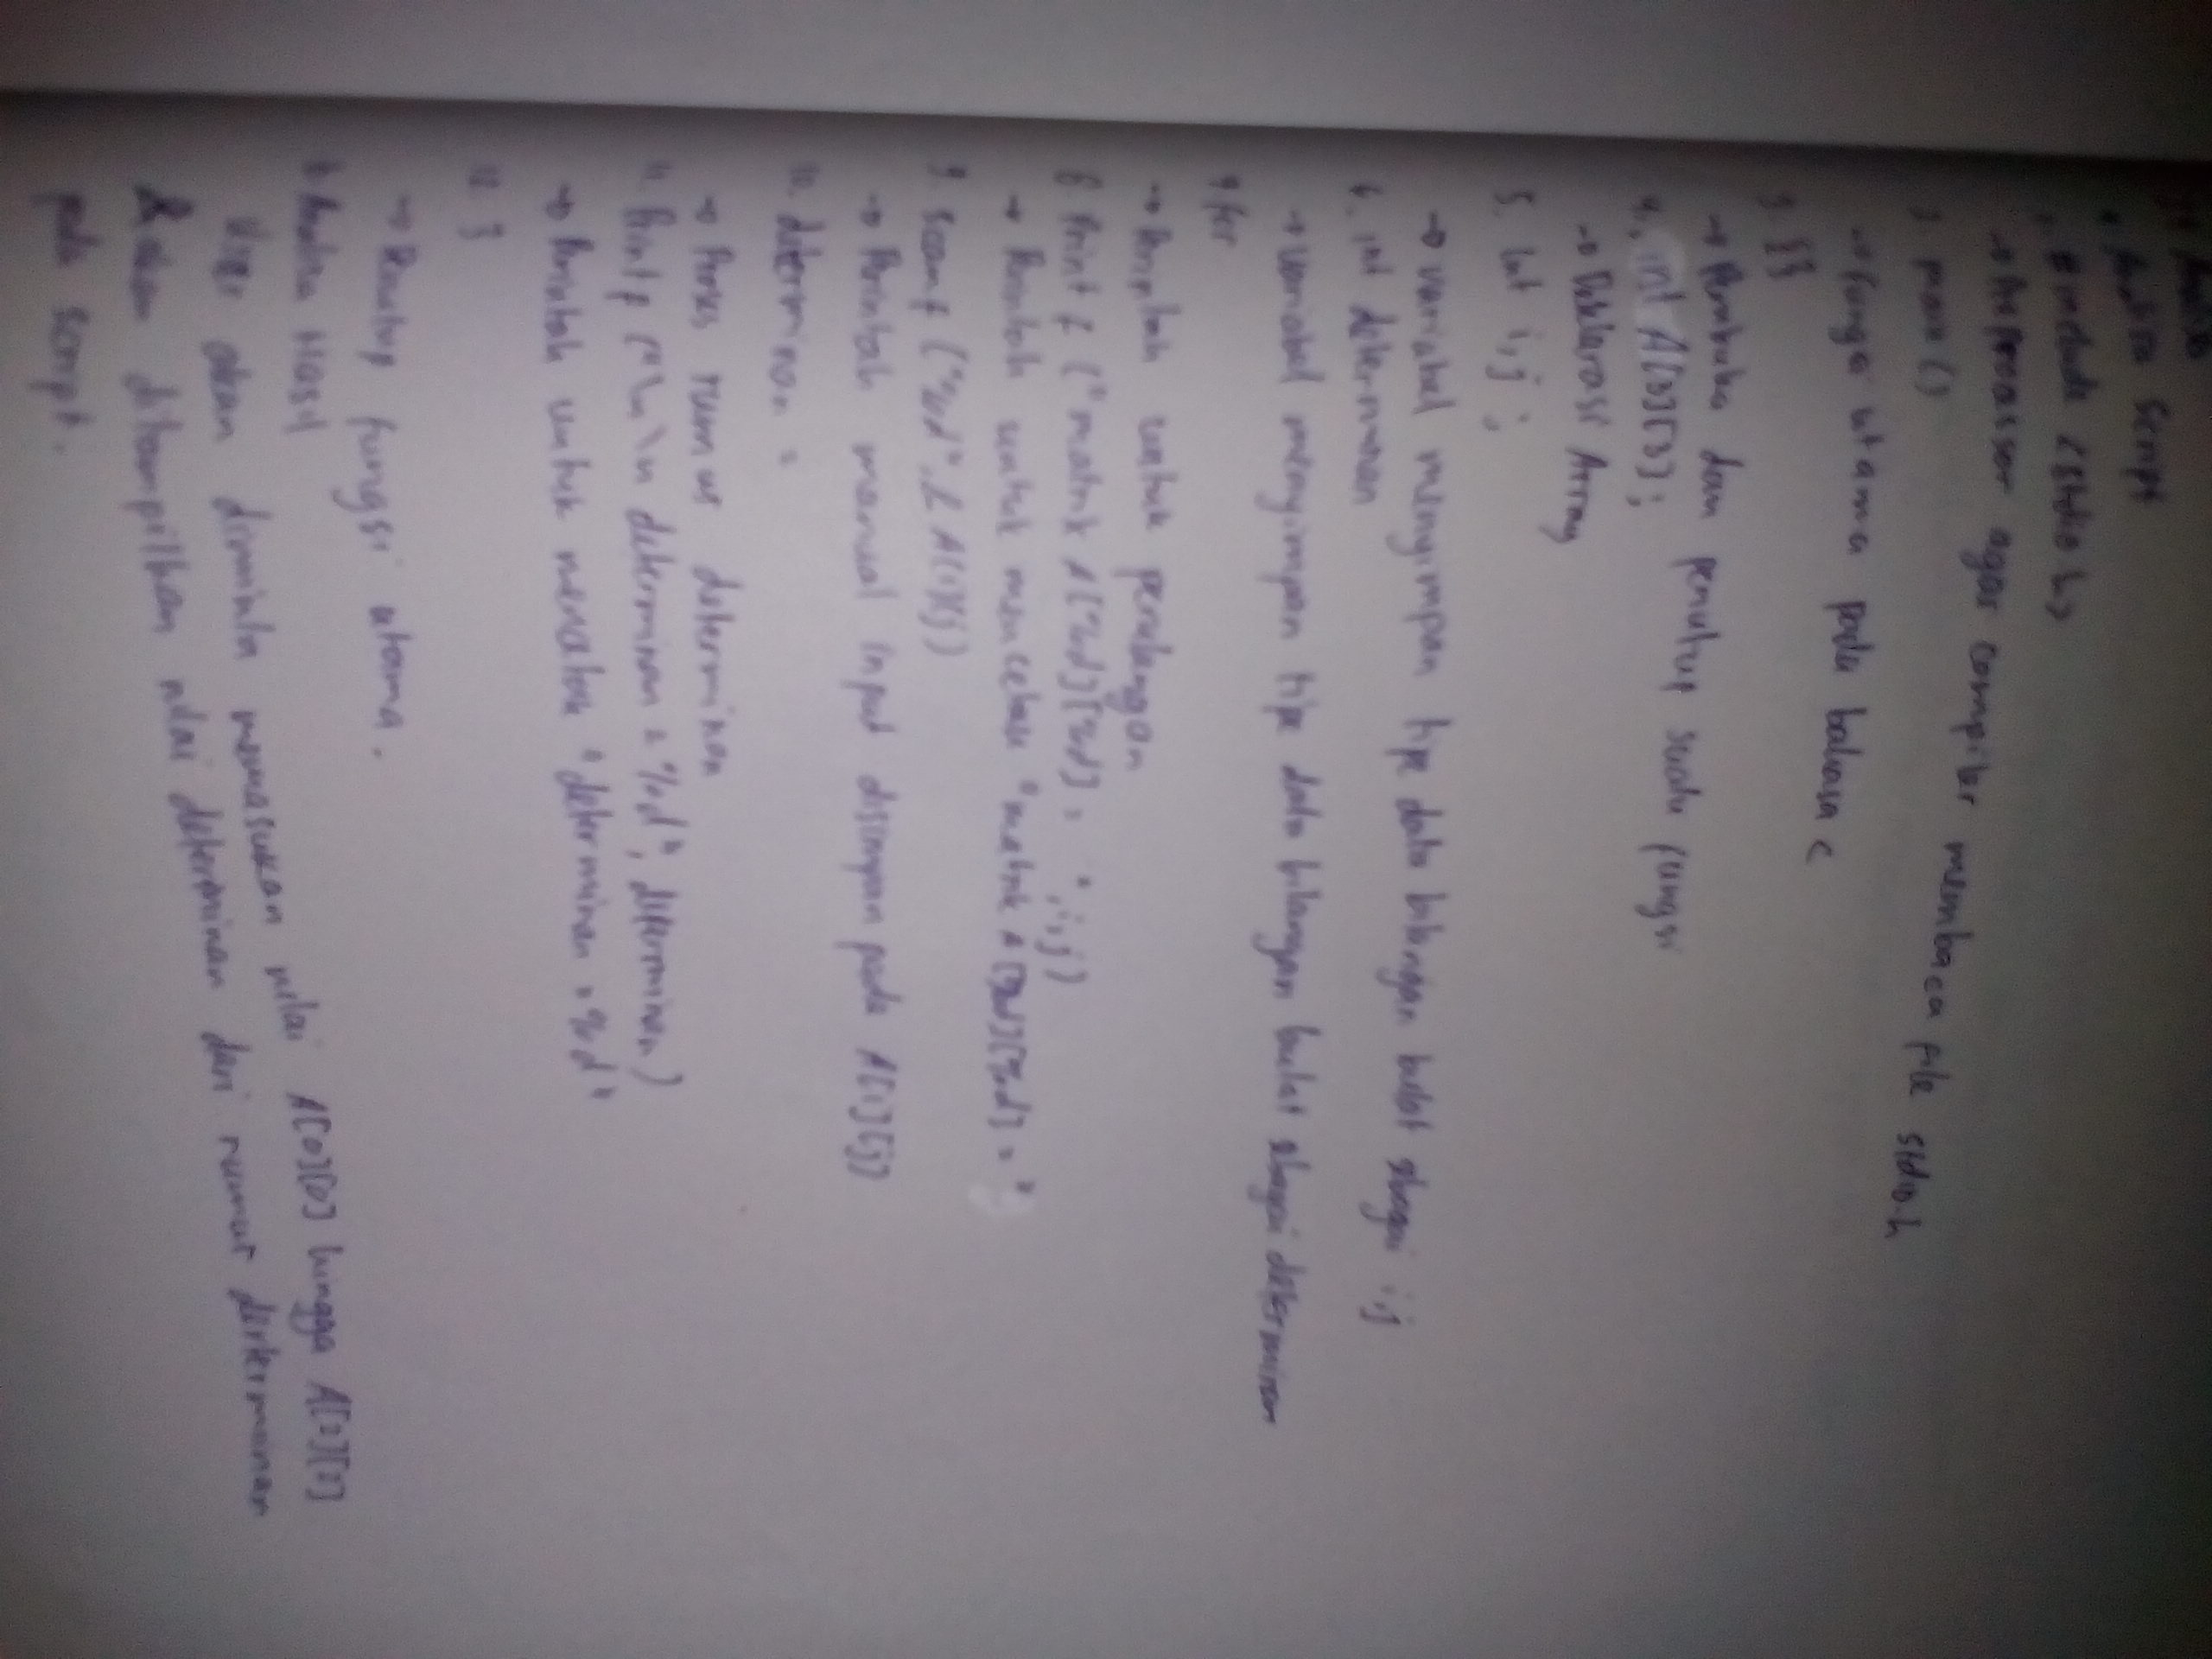 Analisa
Analisa Script
1. #include <stdio.h>
→ Preprocessor agar compiler membaca file stdio.h
2. main ()
→ Fungsi utama pada bahasa C
3. {}
→ Pembuka dan penutup suatu fungsi
4. int A[3][3];
→ Deklarasi Array
5. int i,j;
→ variabel menyimpan tipe data bilangan bulat sbagai i,j
6. int determinan
→ variabel menyimpan tipe data bilangan bulat sbagai determinan
7 for
→ Perintah untuk perulangan
8 Printf ("matrik A[%d][%d] = ",i,j)
→ Perintah untuk mencetak "matrik A[%d][%d] = "
9. scanf ("%d", & A[i][j])
→ Perintah manual input disimpan pada A[i][j]
10. determinan =
→ Proses rumus determinan
11. Printf ("\n\n determinan = %d", determinan)
→ Perintah untuk mencetak "determinan = %d"
12 }
→ Penutup fungsi utama.
Analisa Hasil
User akan diminta memasukan nilai A[0][0] hingga A[2][2]
& akan ditampilkan nilai determinan dari rumus determinan
pada script.